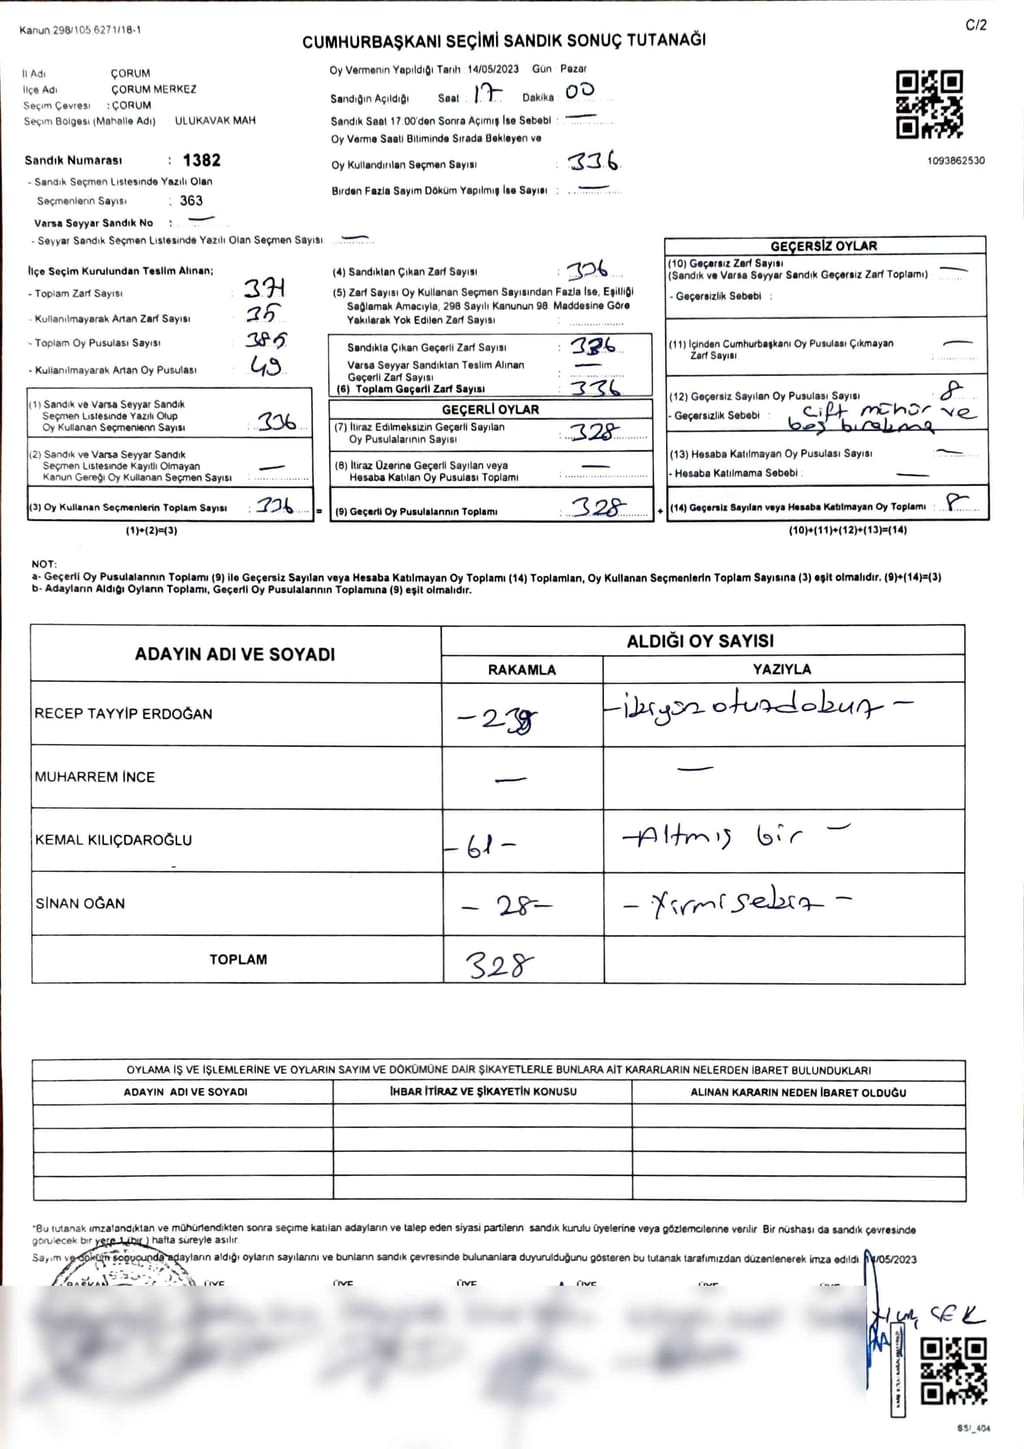 Kanun 298/105 6271/18-1
C/2
CUMHURBAŞKANI SEÇİMİ SANDIK SONUÇ TUTANAĞI
İl Adı ÇORUM
İlçe Adı ÇORUM MERKEZ
Seçim Çevresi : ÇORUM
Seçim Bölgesi (Mahalle Adı) ULUKAVAK MAH
Sandık Numarası : 1382
- Sandık Seçmen Listesinde Yazılı Olan
Seçmenlerin Sayısı : 363
Varsa Seyyar Sandık No : —
- Seyyar Sandık Seçmen Listesinde Yazılı Olan Seçmen Sayısı —
Oy Vermenin Yapıldığı Tarih 14/05/2023 Gün Pazar
Sandığın Açıldığı Saat 17 Dakika 00
Sandık Saat 17:00'den Sonra Açımış İse Sebebi : —
Oy Verme Saati Bitiminde Sırada Bekleyen ve
Oy Kullandırılan Seçmen Sayısı : 336
Birden Fazla Sayım Döküm Yapılmış İse Sayısı : —
1093862530
İlçe Seçim Kurulundan Teslim Alınan;
- Toplam Zarf Sayısı : 371
- Kullanılmayarak Artan Zarf Sayısı : 35
- Toplam Oy Pusulası Sayısı : 385
- Kullanılmayarak Artan Oy Pusulası : 49
(1) Sandık ve Varsa Seyyar Sandık
Seçmen Listesinde Yazılı Olup
Oy Kullanan Seçmenlerin Sayısı : 336
(2) Sandık ve Varsa Seyyar Sandık
Seçmen Listesinde Kayıtlı Olmayan
Kanun Gereği Oy Kullanan Seçmen Sayısı : —
(3) Oy Kullanan Seçmenlerin Toplam Sayısı : 336 =
(1)+(2)=(3)
(4) Sandıktan Çıkan Zarf Sayısı : 336
(5) Zarf Sayısı Oy Kullanan Seçmen Sayısından Fazla İse, Eşitliği
Sağlamak Amacıyla, 298 Sayılı Kanunun 98 Maddesine Göre
Yakılarak Yok Edilen Zarf Sayısı :
Sandıkta Çıkan Geçerli Zarf Sayısı : 336
Varsa Seyyar Sandıktan Teslim Alınan
Geçerli Zarf Sayısı : —
(6) Toplam Geçerli Zarf Sayısı : 336
GEÇERLİ OYLAR
(7) İtiraz Edilmeksizin Geçerli Sayılan
Oy Pusulalarının Sayısı : 328
(8) İtiraz Üzerine Geçerli Sayılan veya
Hesaba Katılan Oy Pusulası Toplamı : —
(9) Geçerli Oy Pusulalarının Toplamı : 328 +
GEÇERSİZ OYLAR
(10) Geçersiz Zarf Sayısı
(Sandık ve Varsa Seyyar Sandık Geçersiz Zarf Toplamı) : —
- Geçersizlik Sebebi :
(11) İçinden Cumhurbaşkanı Oy Pusulası Çıkmayan
Zarf Sayısı : —
(12) Geçersiz Sayılan Oy Pusulası Sayısı : 8
- Geçersizlik Sebebi : Çift mühür ve
boş bırakma
(13) Hesaba Katılmayan Oy Pusulası Sayısı : —
- Hesaba Katılmama Sebebi : —
(14) Geçersiz Sayılan veya Hesaba Katılmayan Oy Toplamı : 8
(10)+(11)+(12)+(13)=(14)
NOT:
a- Geçerli Oy Pusulalarının Toplamı (9) ile Geçersiz Sayılan veya Hesaba Katılmayan Oy Toplamı (14) Toplamları, Oy Kullanan Seçmenlerin Toplam Sayısına (3) eşit olmalıdır. (9)+(14)=(3)
b- Adayların Aldığı Oyların Toplamı, Geçerli Oy Pusulalarının Toplamına (9) eşit olmalıdır.
ADAYIN ADI VE SOYADI
ALDIĞI OY SAYISI
RAKAMLA YAZIYLA
RECEP TAYYİP ERDOĞAN - 239 - ikiyüz otuzdokuz -
MUHARREM İNCE — —
KEMAL KILIÇDAROĞLU - 61 - - Altmış bir -
SİNAN OĞAN - 28 - - Yirmi sekiz -
TOPLAM 328
OYLAMA İŞ VE İŞLEMLERİNE VE OYLARIN SAYIM VE DÖKÜMÜNE DAİR ŞİKAYETLERLE BUNLARA AİT KARARLARIN NELERDEN İBARET BULUNDUKLARI
ADAYIN ADI VE SOYADI İHBAR İTİRAZ VE ŞİKAYETİN KONUSU ALINAN KARARIN NEDEN İBARET OLDUĞU
*Bu tutanak imzalandıktan ve mühürlendikten sonra seçime katılan adayların ve talep eden siyasi partilerin sandık kurulu üyelerine veya gözlemcilerine verilir Bir nüshası da sandık çevresinde
görülecek bir yere 1 (bir) hafta süreyle asılır.
Sayım ve döküm sonucunda adayların aldığı oyların sayılarını ve bunların sandık çevresinde bulunanlara duyurulduğunu gösteren bu tutanak tarafımızdan düzenlenerek imza edildi 14/05/2023
BAŞKAN ÜYE ÜYE ÜYE ÜYE ÜYE ÜYE
SSİ_404